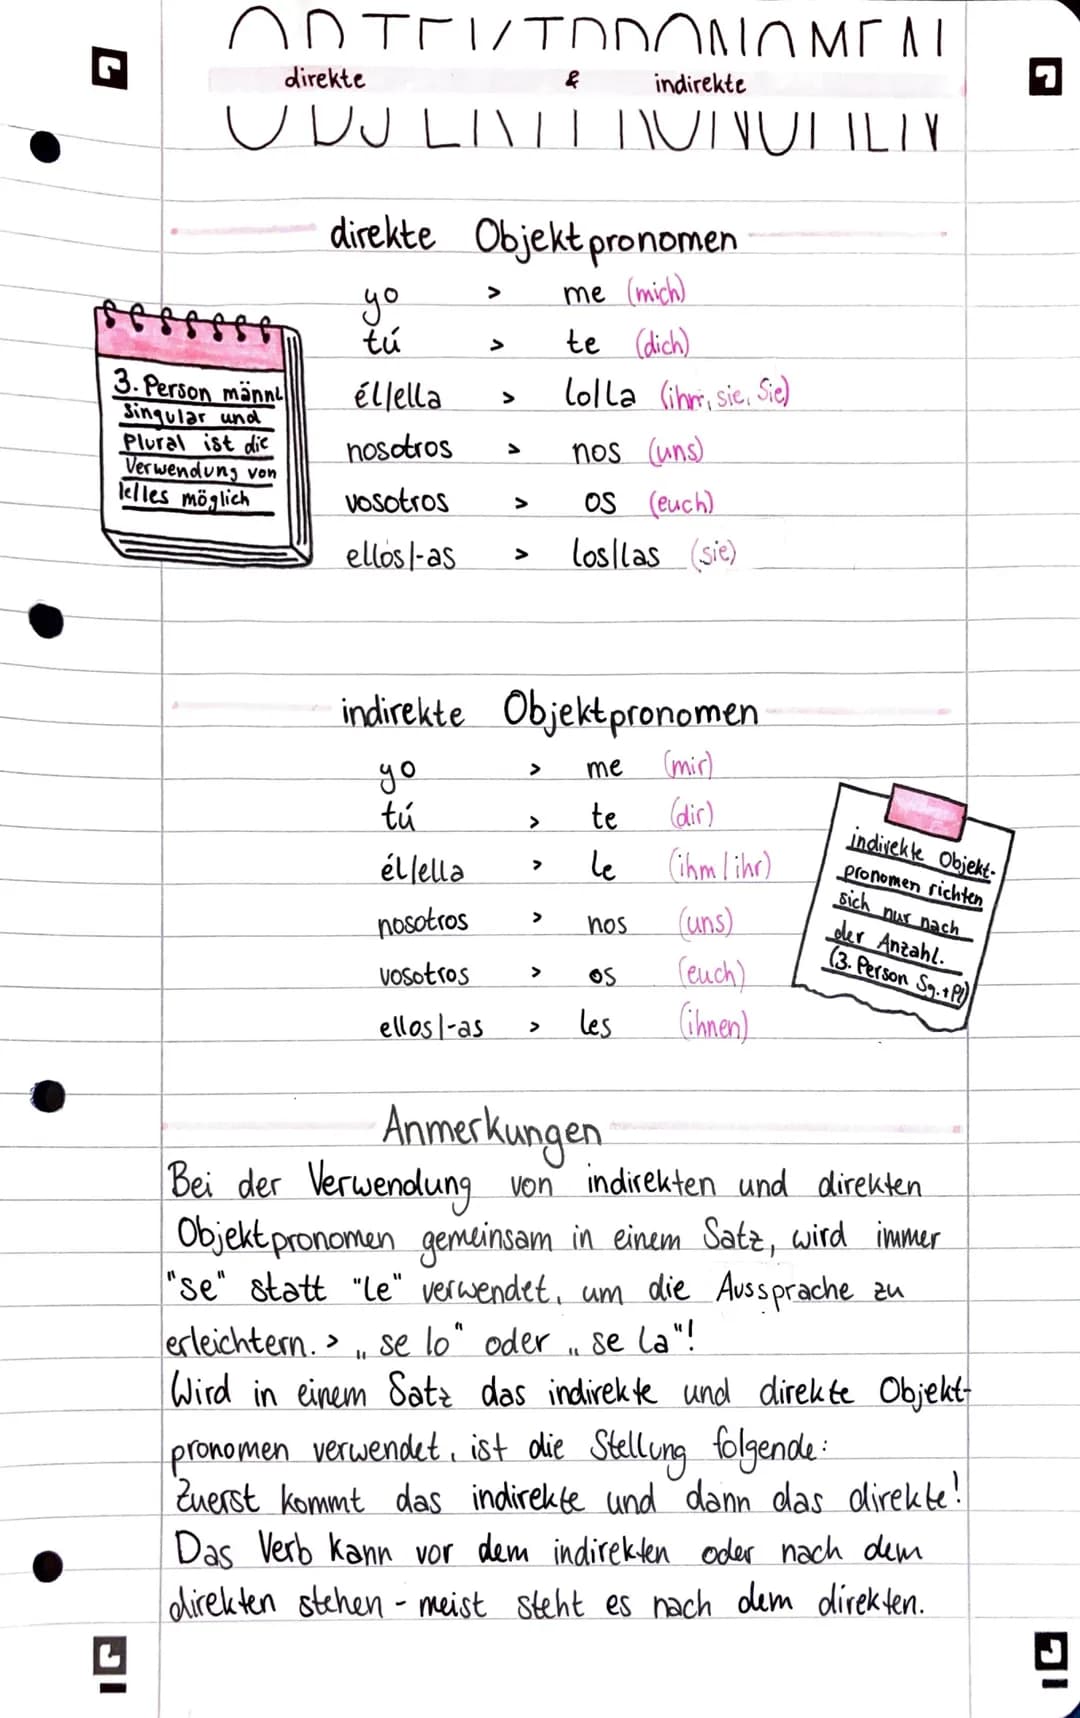 OBJEKTPRONOMEN
direkte & indirekte
direkte Objektpronomen
yo > me (mich)
tú > te (dich)
él/ella > lo/la (ihn, sie, Sie)
nosotros > nos (uns)
vosotros > os (euch)
ellos/-as > los/las (sie)
3. Person männl.
Singular und
Plural ist die
Verwendung von
le/les möglich
indirekte Objektpronomen
yo > me (mir)
tú > te (dir)
él/ella > le (ihm/ihr)
nosotros > nos (uns)
vosotros > os (euch)
ellos/-as > les (ihnen)
indirekte Objekt-
pronomen richten
sich nur nach
der Anzahl.
(3. Person Sg.+Pl)
Anmerkungen
Bei der Verwendung von indirekten und direkten
Objektpronomen gemeinsam in einem Satz, wird immer
"se" statt "le" verwendet, um die Aussprache zu
erleichtern. > „se lo" oder „se la"!
Wird in einem Satz das indirekte und direkte Objekt-
pronomen verwendet, ist die Stellung folgende:
Zuerst kommt das indirekte und dann das direkte!
Das Verb kann vor dem indirekten oder nach dem
direkten stehen - meist steht es nach dem direkten.